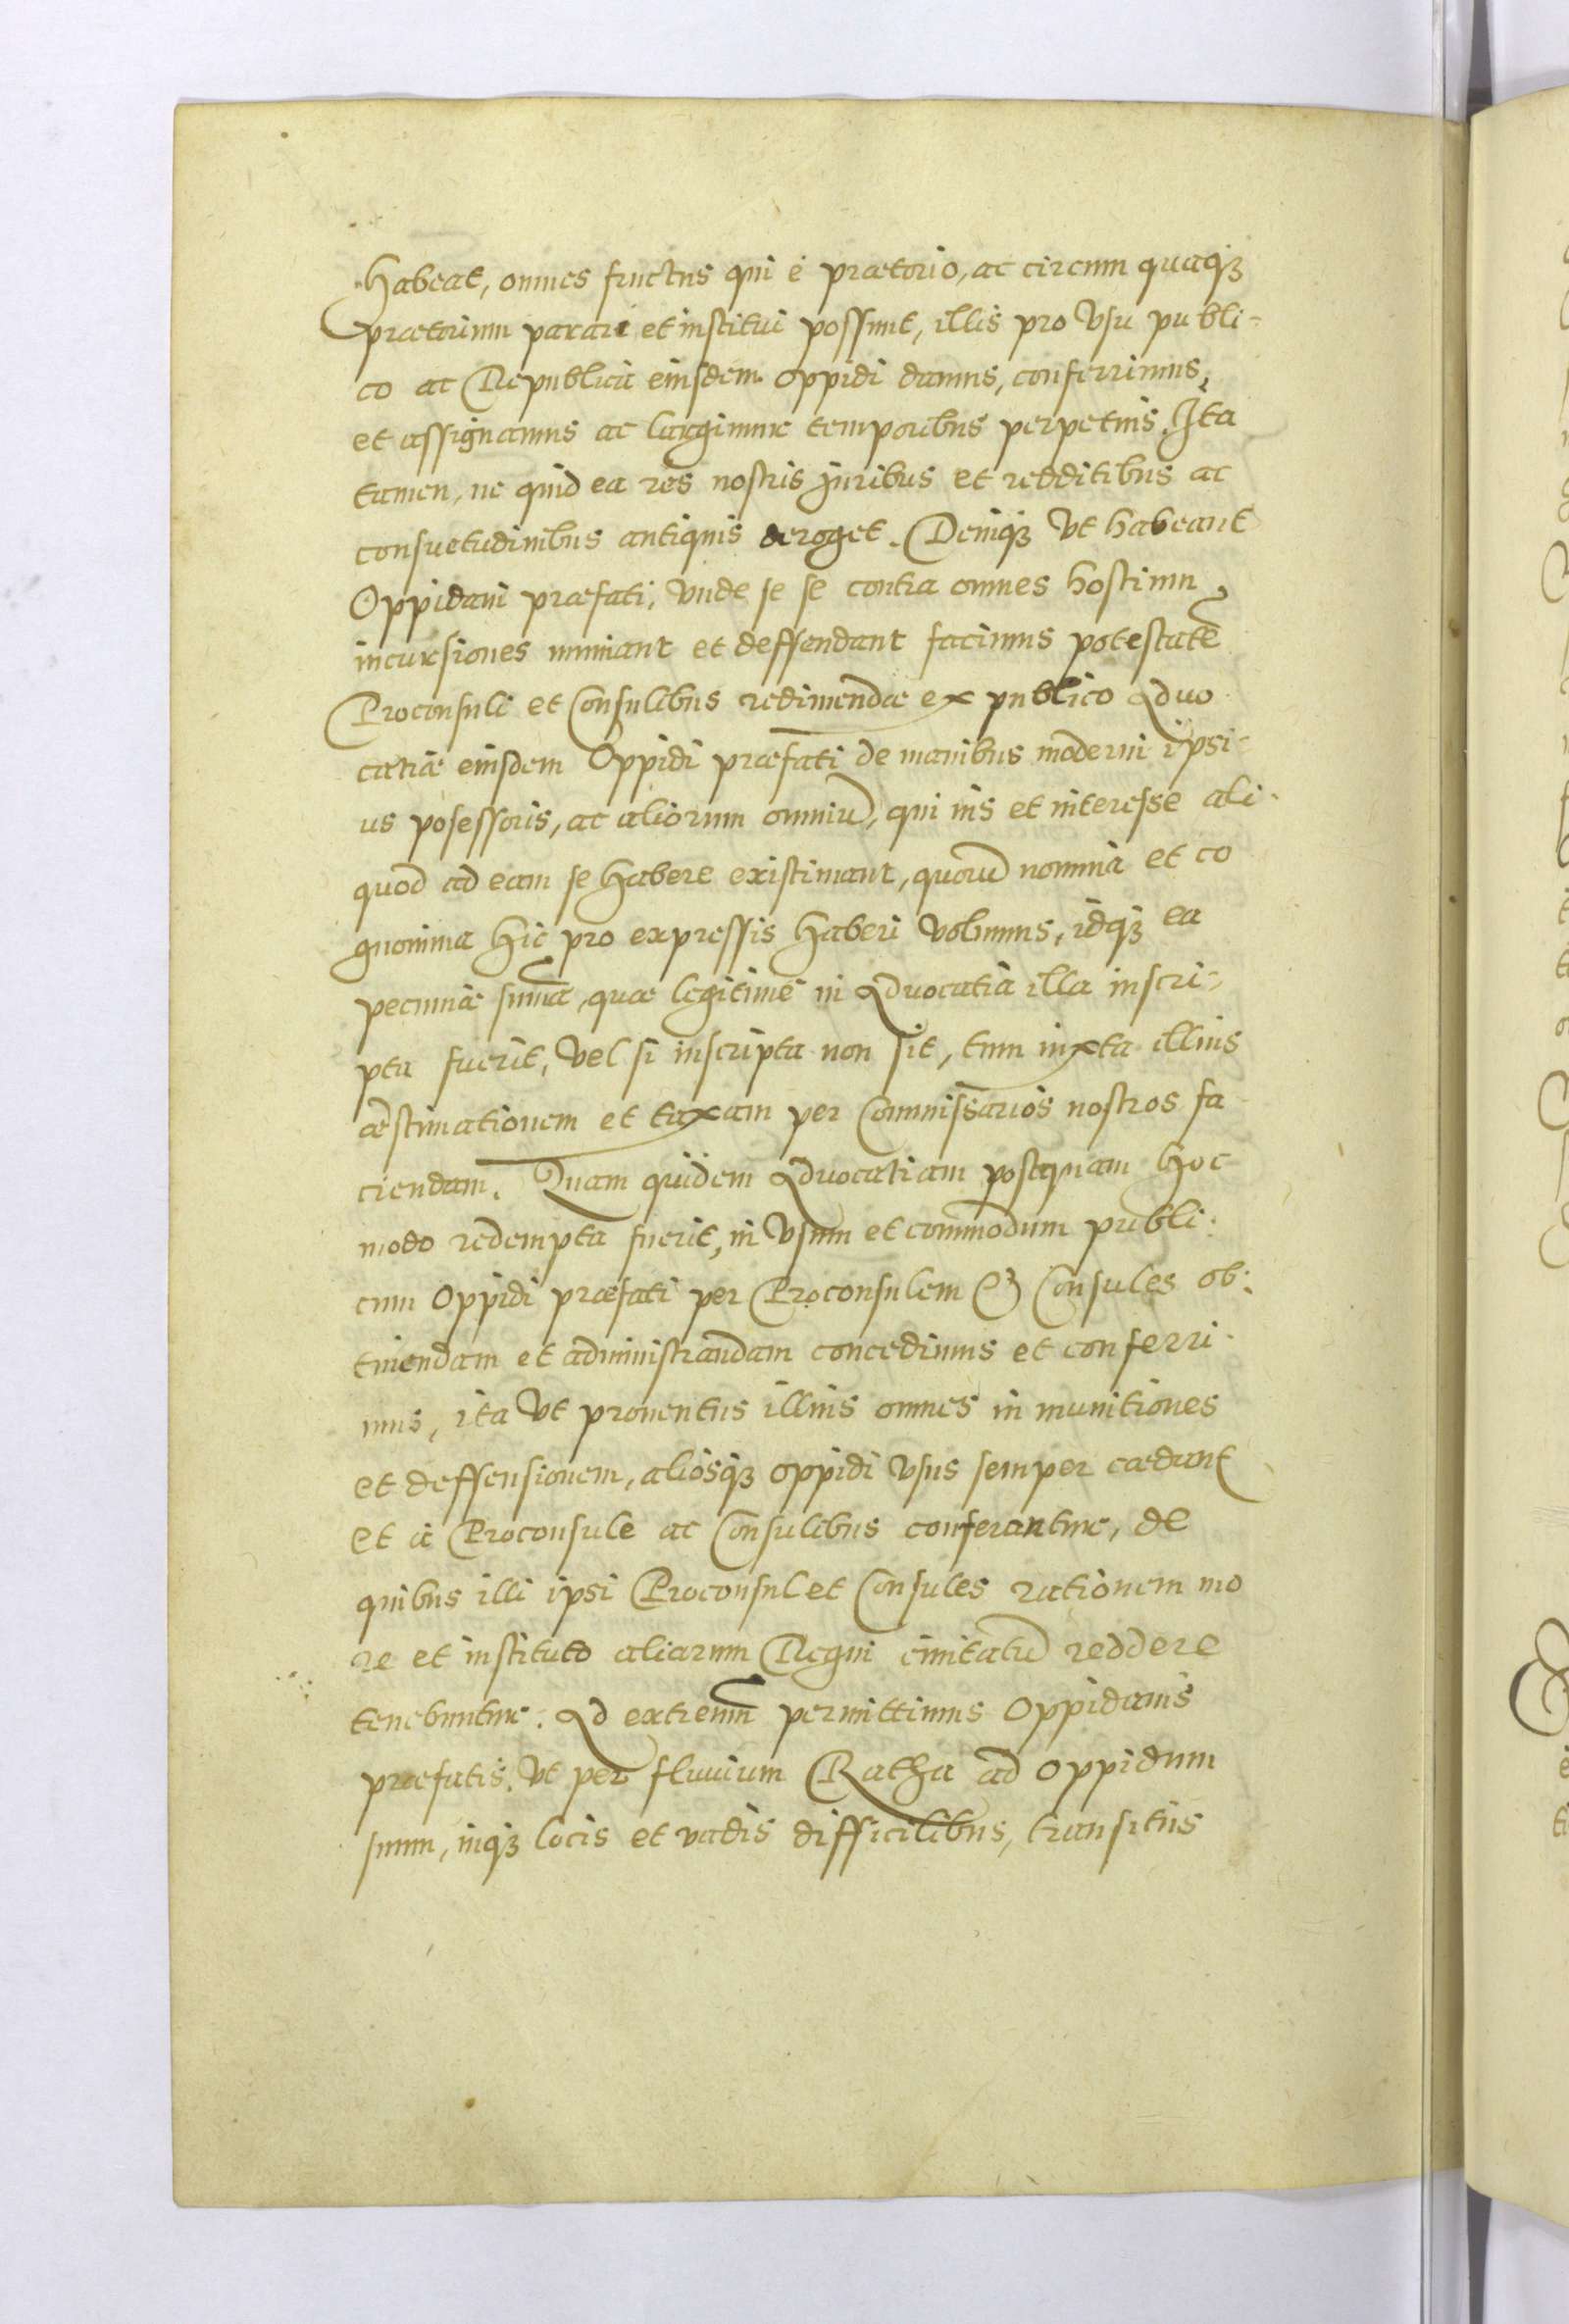 habeat, omnes fructus qui é praetorio, ac circum quaqꝫ
praetorium parari et institui possunt, illis pro Vsu publi-
co ac Republica eiusdem oppidi damus, conferrimus,
et assignamus ac largimur temporibus perpetuis. Ita
tamen, ne quid ea res nostris juribus et redditibus ac
consuetudinibus antiquis deroget. Deniqꝫ Vt habeant
Oppidani praefati, vnde se se contra omnes hostium
incursiones muniant et deffendant facimus potestatē
Proconsuli et Consulibus redimendae ex publico Aduo
catiae eiusdem Oppidi praefati de manibus moderni ipsi-
us posessoris, ac aliorum omniū, qui ius et interesse ali-
quod ad eam se habere existimant, quorū nomina et co
gnomina hic pro expressis haberi volumus, idqꝫ ea
pecuniae sum̄a, quae legitimé in Aduocatia illa inscri-
pta fuerit, vel si inscripta non sit, tum iuxta illius
aestimationem et taxam per Commissarios nostros fa
ciendam. Quam quidem Aduocatiam postquam hoc
modo redempta fuerit, in vsum et commodum publi-
cum Oppidi praefati per Proconsulem & Consules ob-
tinendam et administrandam concedimus et conferri-
mus, ita Vt prouentus illius omnes in munitiones
et deffensionem, aliosqꝫ oppidi vsus semper caedant
et a Proconsule ac Consulibus conferantur, de
quibus illi ipsi Proconsul et Consules rationem mo
re et instituto aliarum Regni ciuitatū reddere
tenebuntur. Ad extremū permittimus Oppidanis
praefatis, Vt per fluuium Ratha ad Oppidum
suum, inqꝫ locis et vadis difficilibus, transitus